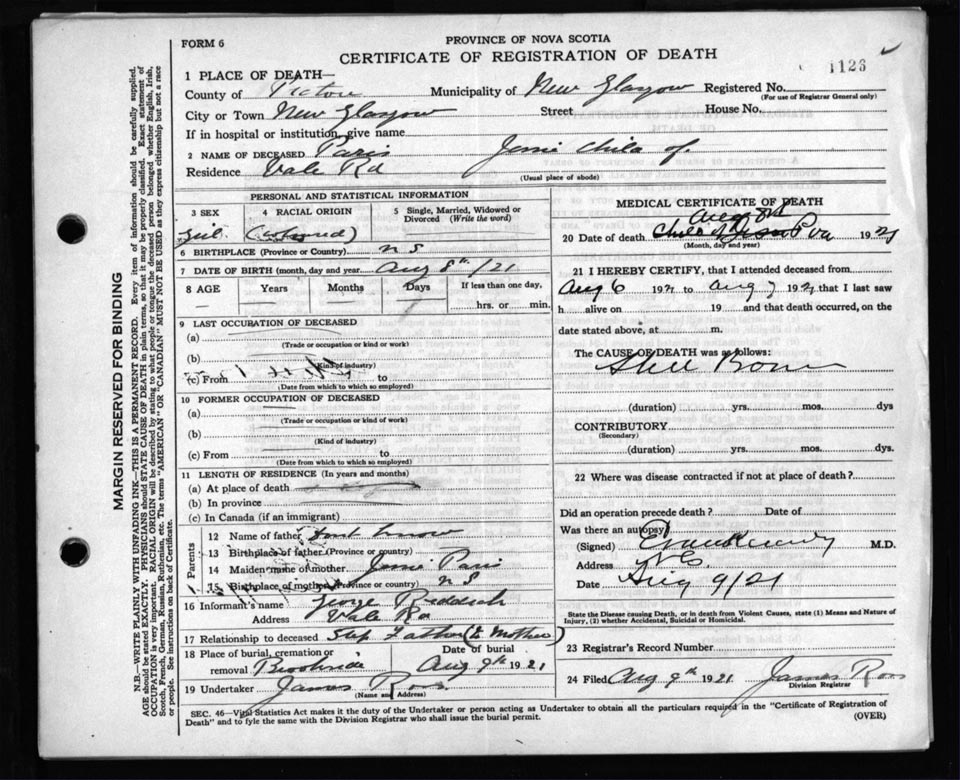 FORM 6
PROVINCE OF NOVA SCOTIA
CERTIFICATE OF REGISTRATION OF DEATH
1126
1 PLACE OF DEATH—
County of Pictou Municipality of New Glasgow Registered No.
(For use of Registrar General only)
City or Town New Glasgow Street House No.
If in hospital or institution, give name
2 NAME OF DECEASED Paris Jessie Child of.
Residence Vale Rd
(Usual place of abode)
PERSONAL AND STATISTICAL INFORMATION
3 SEX
4 RACIAL ORIGIN
(Colored)
5 Single, Married, Widowed or Divorced (Write the word)
6 BIRTHPLACE (Province or Country) N S
7 DATE OF BIRTH (month, day and year) Aug 8th /21
8 AGE Years Months Days If less than one day,
hrs. or min.
9 LAST OCCUPATION OF DECEASED
(a)
(Trade or occupation or kind of work)
(b)
(Kind of industry)
(c) From to
(Date from which to which so employed)
10 FORMER OCCUPATION OF DECEASED
(a)
(Trade or occupation or kind of work)
(b)
(Kind of industry)
(c) From to
(Date from which to which so employed)
11 LENGTH OF RESIDENCE (In years and months)
(a) At place of death
(b) In province
(c) In Canada (if an immigrant)
Parents
12 Name of father Dont know
13 Birthplace of father (Province or country)
14 Maiden name of mother Jessie Paris
15 Birthplace of mother (Province or country) N S
16 Informant's name George Reddick
Address Vale Rd
17 Relationship to deceased Step Father (to Mother)
18 Place of burial, cremation or removal Brookside
Date of burial Aug 9th 1921
19 Undertaker James Ross
(Name and Address)
MEDICAL CERTIFICATE OF DEATH
Aug 8th
20 Date of death 1921
(Month, day and year)
21 I HEREBY CERTIFY, that I attended deceased from
Aug 6 1921 to Aug 7 1921 that I last saw
h alive on 19 and that death occurred, on the
date stated above, at m.
The CAUSE OF DEATH was as follows:
Still Born
(duration) yrs. mos. dys
CONTRIBUTORY
(Secondary)
(duration) yrs. mos. dys.
22 Where was disease contracted if not at place of death?
Did an operation precede death? Date of
Was there an autopsy
(Signed) M.D.
Address
Date Aug 9/21
State the Disease causing Death, or in death from Violent Causes, state (1) Means and Nature of
Injury, (2) whether Accidental, Suicidal or Homicidal.
23 Registrar's Record Number
24 Filed Aug 9th 1921 James Ross
Division Registrar
SEC. 46—Vital Statistics Act makes it the duty of the Undertaker or person acting as Undertaker to obtain all the particulars required in the "Certificate of Registration of
Death" and to fyle the same with the Division Registrar who shall issue the burial permit.
(OVER)
MARGIN RESERVED FOR BINDING
N.B.—WRITE PLAINLY WITH UNFADING INK—THIS IS A PERMANENT RECORD. Every item of information should be carefully supplied.
AGE should be stated EXACTLY. PHYSICIANS should STATE CAUSE OF DEATH in plain terms, so that it may be properly classified. Exact statement of
OCCUPATION is very important. RACIAL ORIGIN will be described by stating to what people or tongue the deceased person belonged whether English, Irish,
Scotch, French, German, Russian, Ruthenian, etc. The terms "AMERICAN" OR "CANADIAN" MUST NOT BE USED as they express citizenship but not a race
or people. See instructions on back of Certificate.